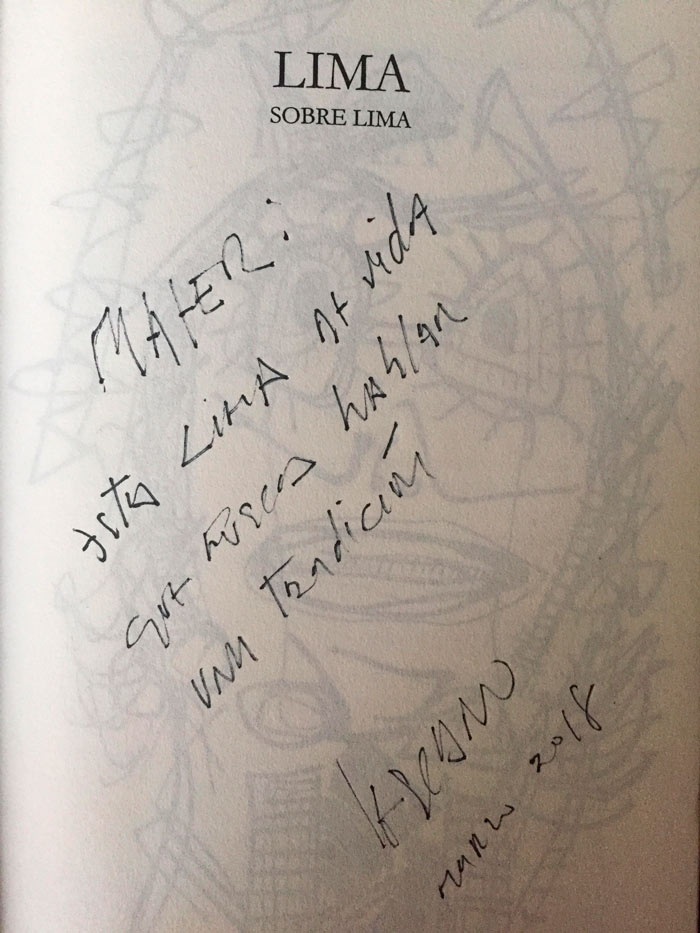 LIMA
SOBRE LIMA
MAFER:
esta LIMA de vida
que buscas hablar
una tradición
marzo 2018